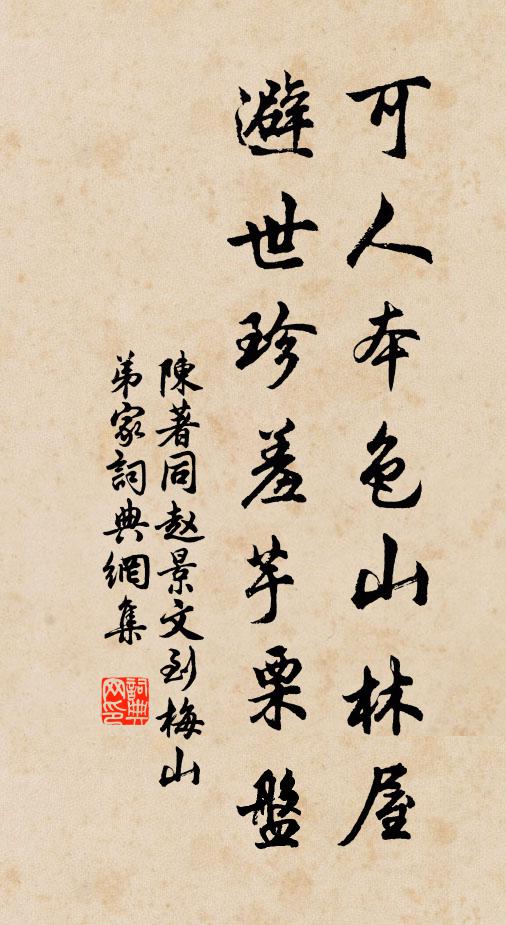 可人本色山林屋
避世珍羞芋栗盤
陳著同赵景文到梅山
弟家詞典網集
詞典网印